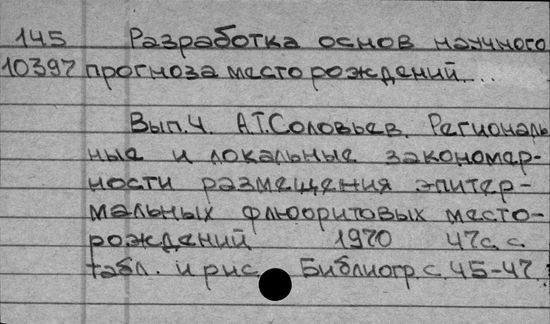 145 Разработка основ научного
10397 прогноза месторождений...
Вып.4. А.Т.Соловьев. Региональ-
ные и локальные закономер-
ности размещения эпитер-
мальных флюоритовых место-
рождений 1970 47с. с.
табл. и рис. Библиогр. с. 45-47.